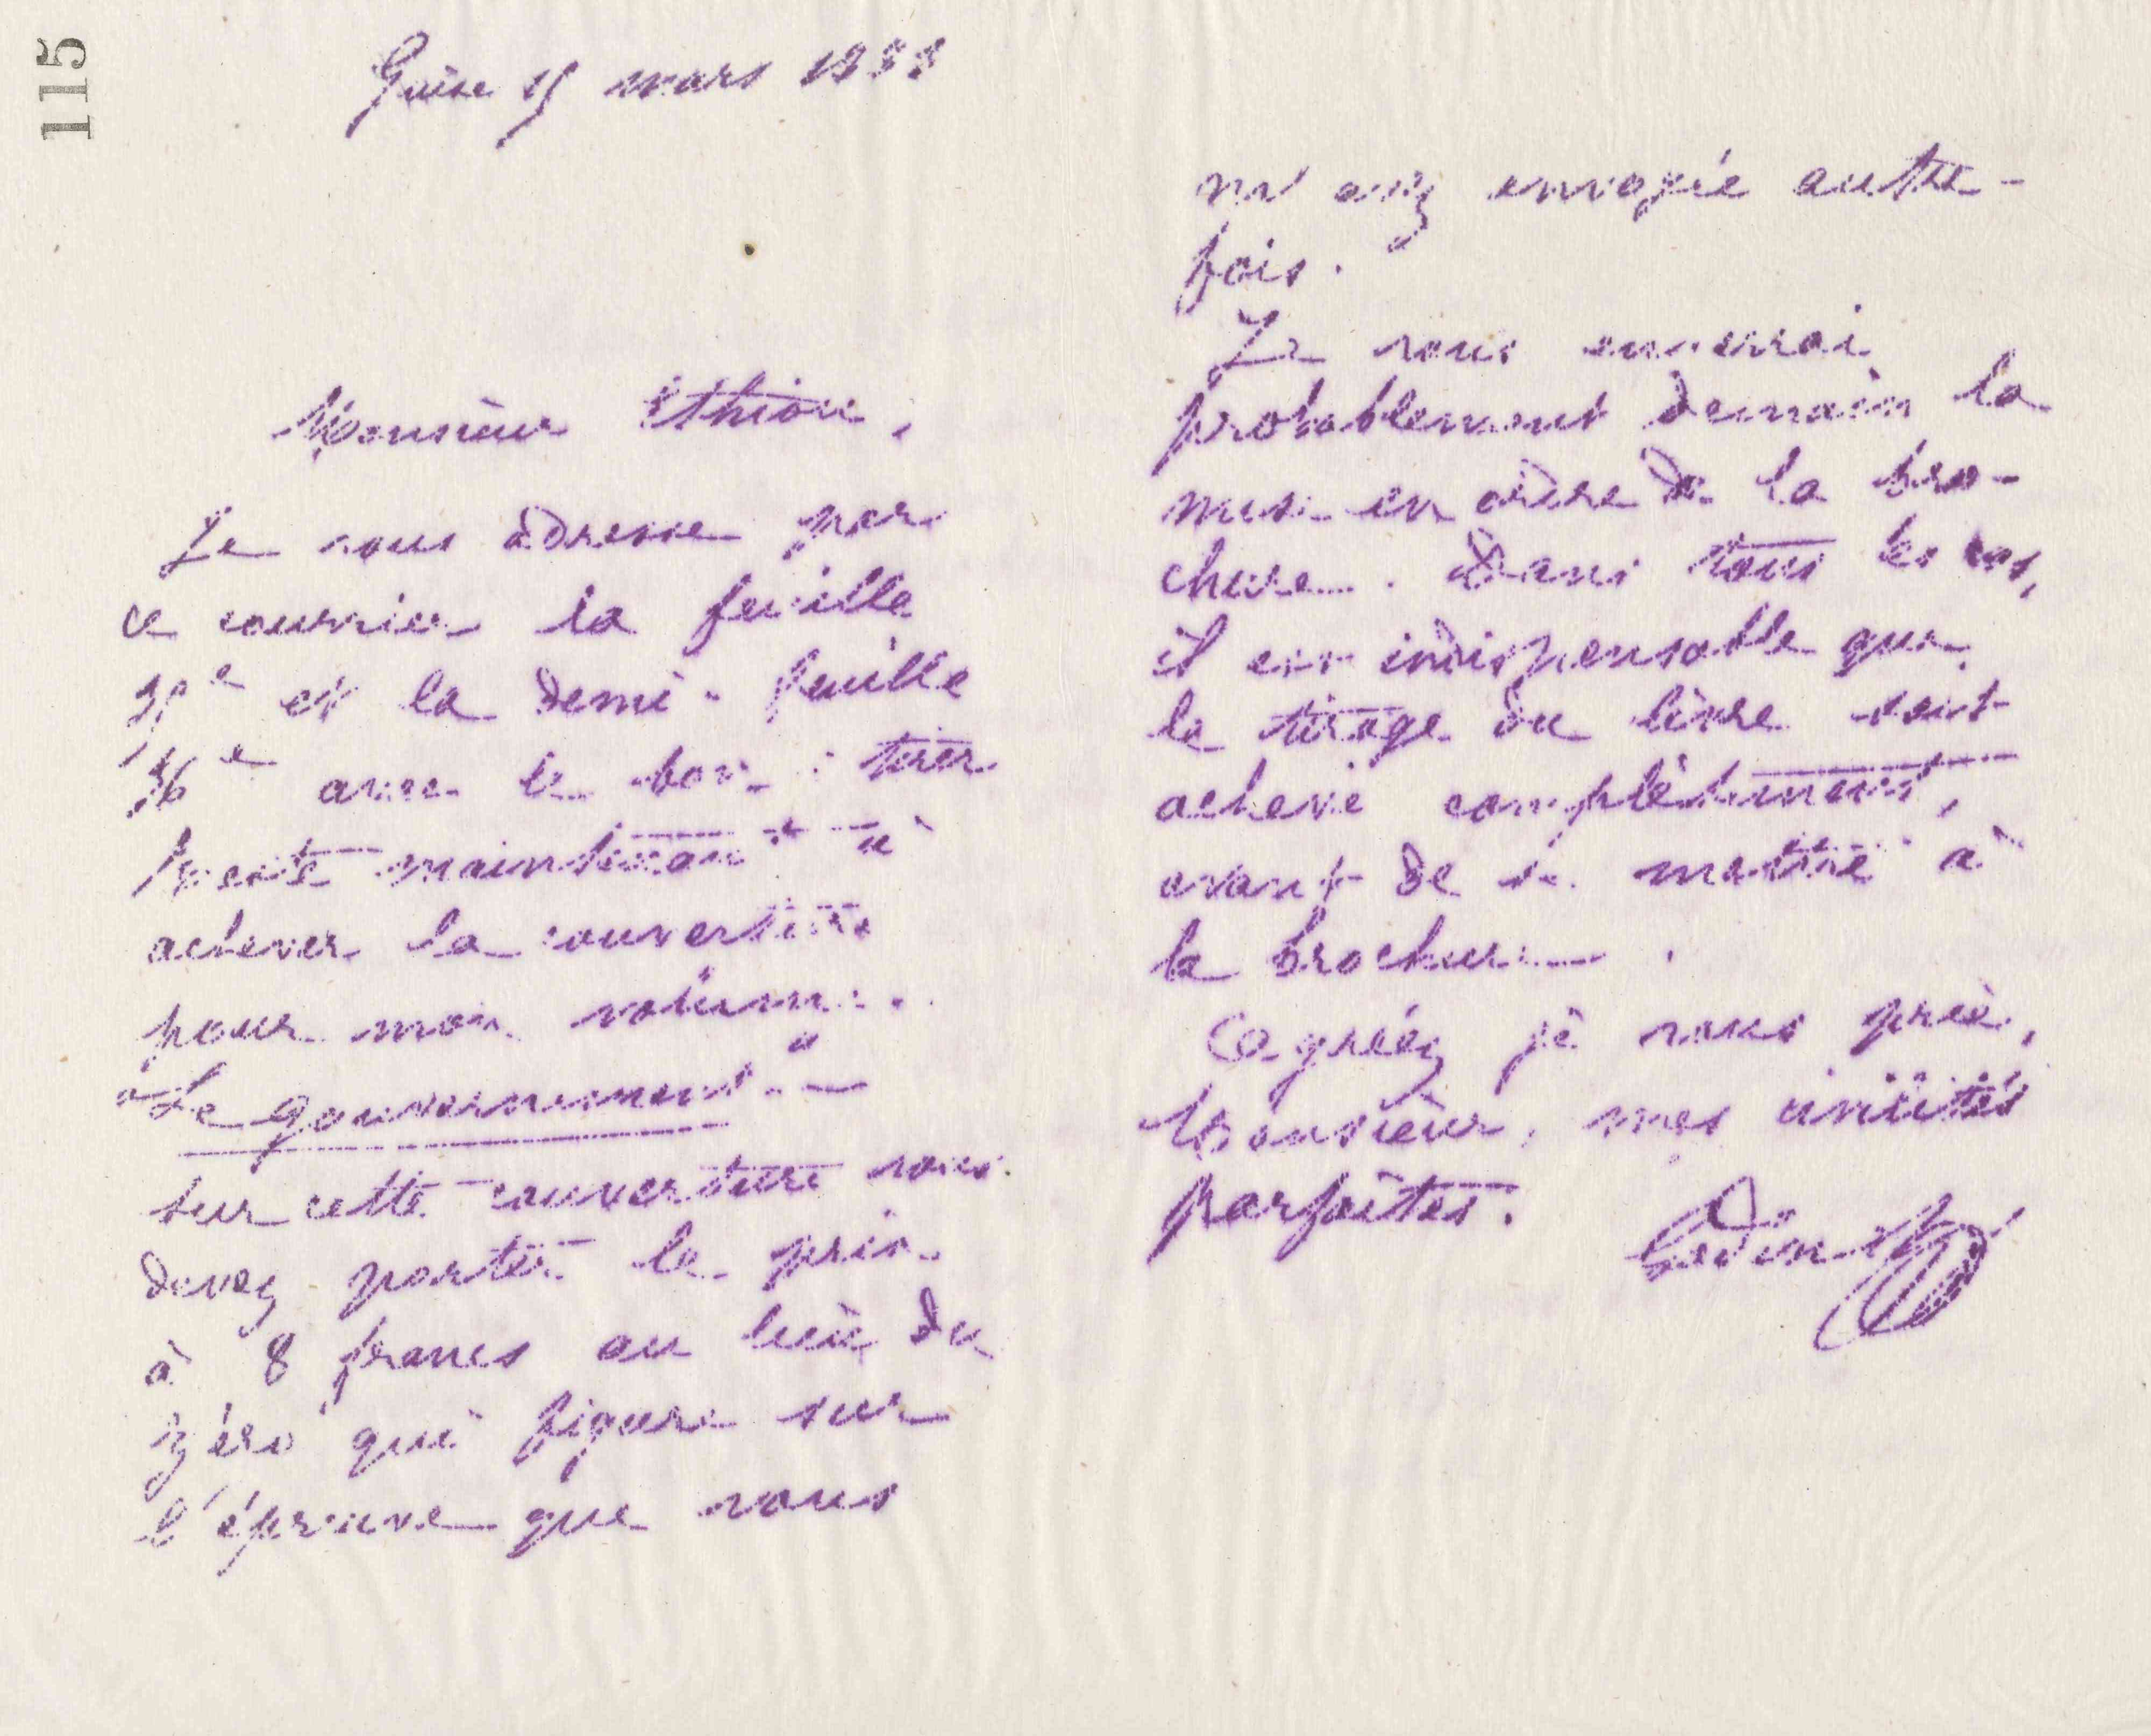 115
Guise 15 mars 1883
Monsieur Ethiou,
Je vous adresse par
ce courrier la feuille
35e et la demi-feuille
36e avec le bon à tirer.
Reste maintenant à
achever la couverture
pour mon volume.
"Le gouvernement." —
Sur cette couverture vous
devez porter le prix
à 8 francs au lieu du
zéro qui figure sur
l'épreuve que vous
m'avez envoyée autre-
fois.
Je vous enverrai
probablement demain la
mise en œuvre de la bro-
chure. Dans tous les cas,
il est indispensable que
le tirage du livre soit
achevé complètement,
avant de se mettre à
la brochure.
Agréez je vous prie,
Monsieur, mes civilités
parfaites.
Godin